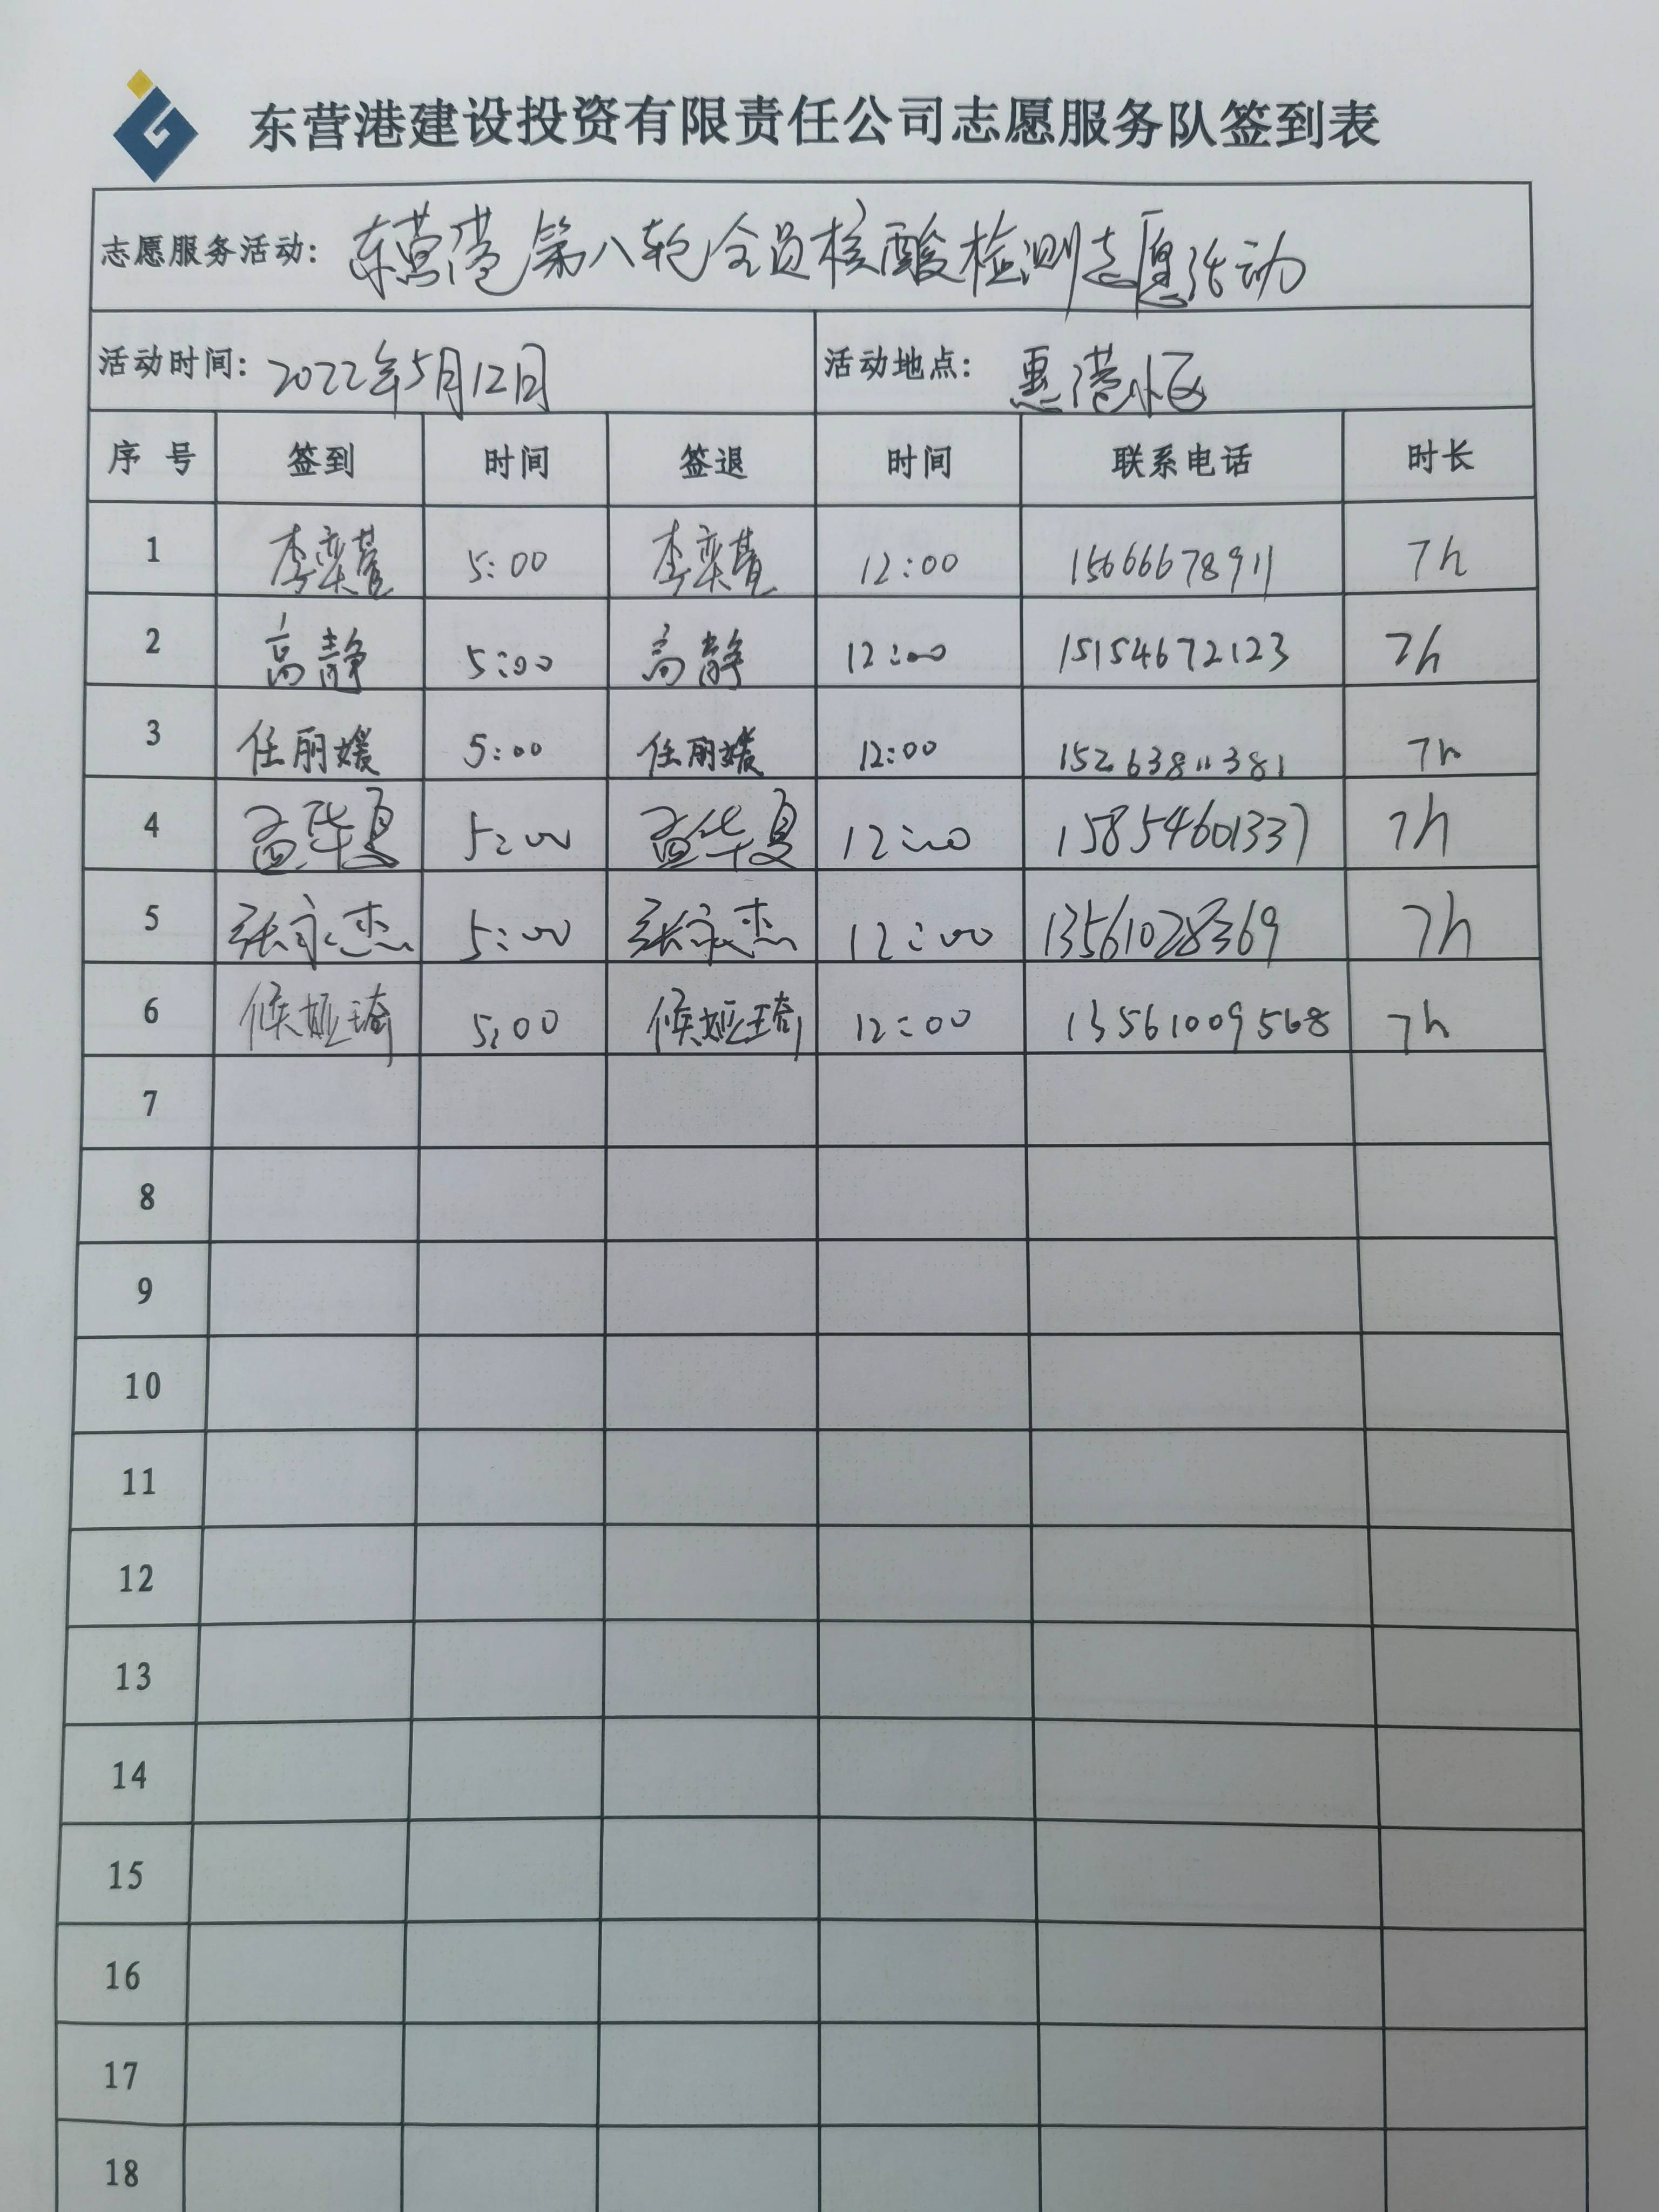 东营港建设投资有限责任公司志愿服务队签到表
志愿服务活动：东营港第八轮全员核酸检测志愿活动
活动时间：2022年5月12日 活动地点：惠港小区
序号 签到 时间 签退 时间 联系电话 时长
1 李栾萱 5:00 李栾萱 12:00 15666678911 7h
2 高静 5:00 高静 12:00 15154672123 7h
3 任丽媛 5:00 任丽媛 12:00 15263811381 7h
4 孟华夏 5:00 孟华夏 12:00 15854601337 7h
5 张永杰 5:00 张永杰 12:00 13561028369 7h
6 候娅琦 5:00 候娅琦 12:00 13561009568 7h
7
8
9
10
11
12
13
14
15
16
17
18